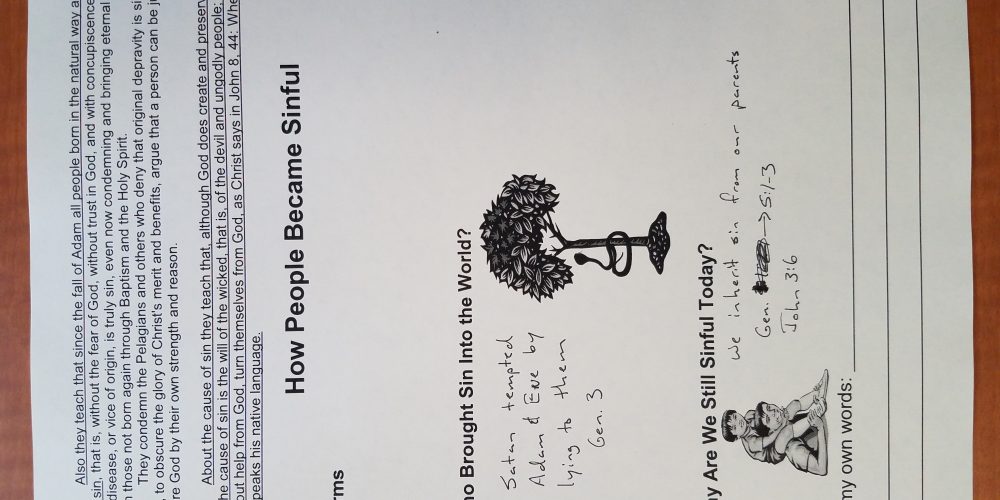 Also they teach that since the fall of Adam all people born in the natural way a
sin, that is, without the fear of God, without trust in God, and with concupiscence
disease, or vice of origin, is truly sin, even now condemning and bringing eternal
those not born again through Baptism and the Holy Spirit.
They condemn the Pelagians and others who deny that original depravity is si
to obscure the glory of Christ's merit and benefits, argue that a person can be ju
re God by their own strength and reason.
About the cause of sin they teach that, although God does create and preserv
he cause of sin is the will of the wicked, that is, of the devil and ungodly people;
out help from God, turn themselves from God, as Christ says in John 8, 44: Whe
peaks his native language.
How People Became Sinful
rms
ho Brought Sin Into the World?
Satan tempted
Adam & Eve by
lying to them
Gen. 3
hy Are We Still Sinful Today?
We inherit sin from our parents
Gen. → 5:1-3
John 3:6
my own words: